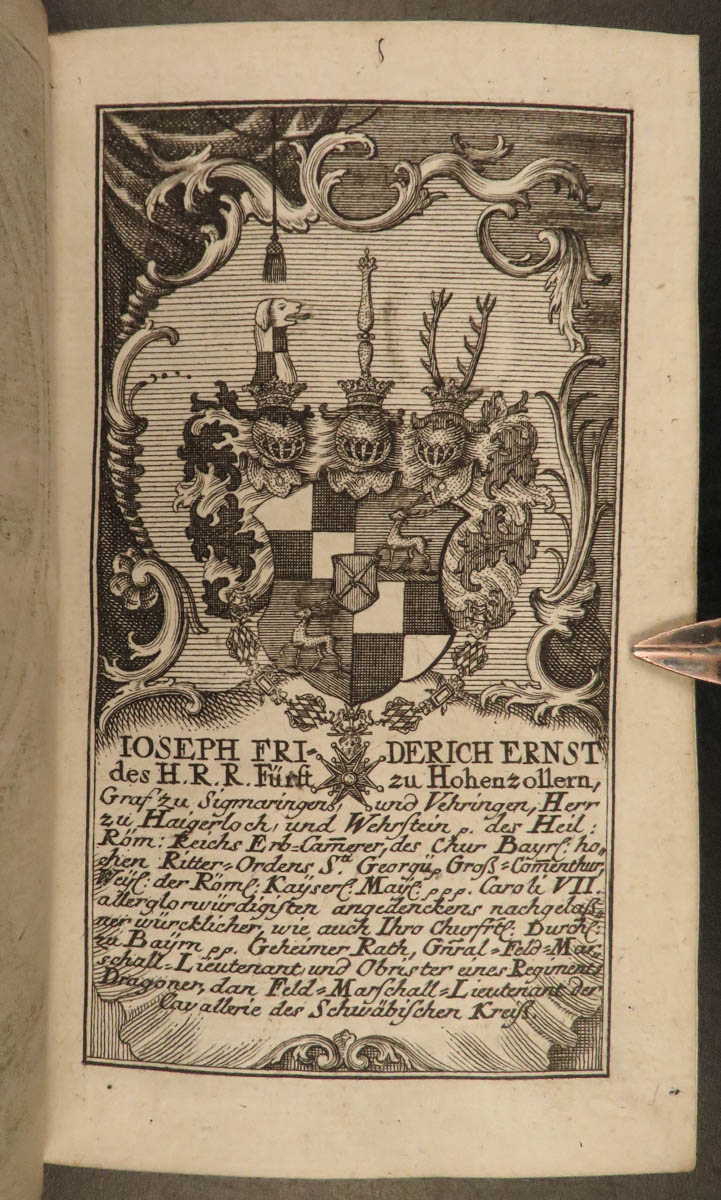 IOSEPH FRI- DERICH ERNST
des H. R. R. Fürst zu Hohenzollern,
Graf zu Sigmaringen, und Vehringen, Herr
zu Haigerloch, und Wehrstein p. des Heil:
Röm: Reichs Erb-Cam̅erer, des Chur Bayrs: ho,
chen Ritter-Ordens, S.ti Georgÿ p Groß-Com̅enthur
Weÿl: der Röms: Kaÿserl: Maÿs: p p p. Caroli VII.
allerglorwürdigisten angedenckens nachgelaß,
ner würcklicher, wie auch Ihro Churfrtl: Durchl:
zu Baÿrn pp. Geheimer Rath, Gn̅ral-Feld-Mar,
schall-Lieutenant, und Obrister eines Regiments
Dragoner, dan Feld-Marschall-Lieutenant der
Cavallerie des Schwäbischen Kreiß.